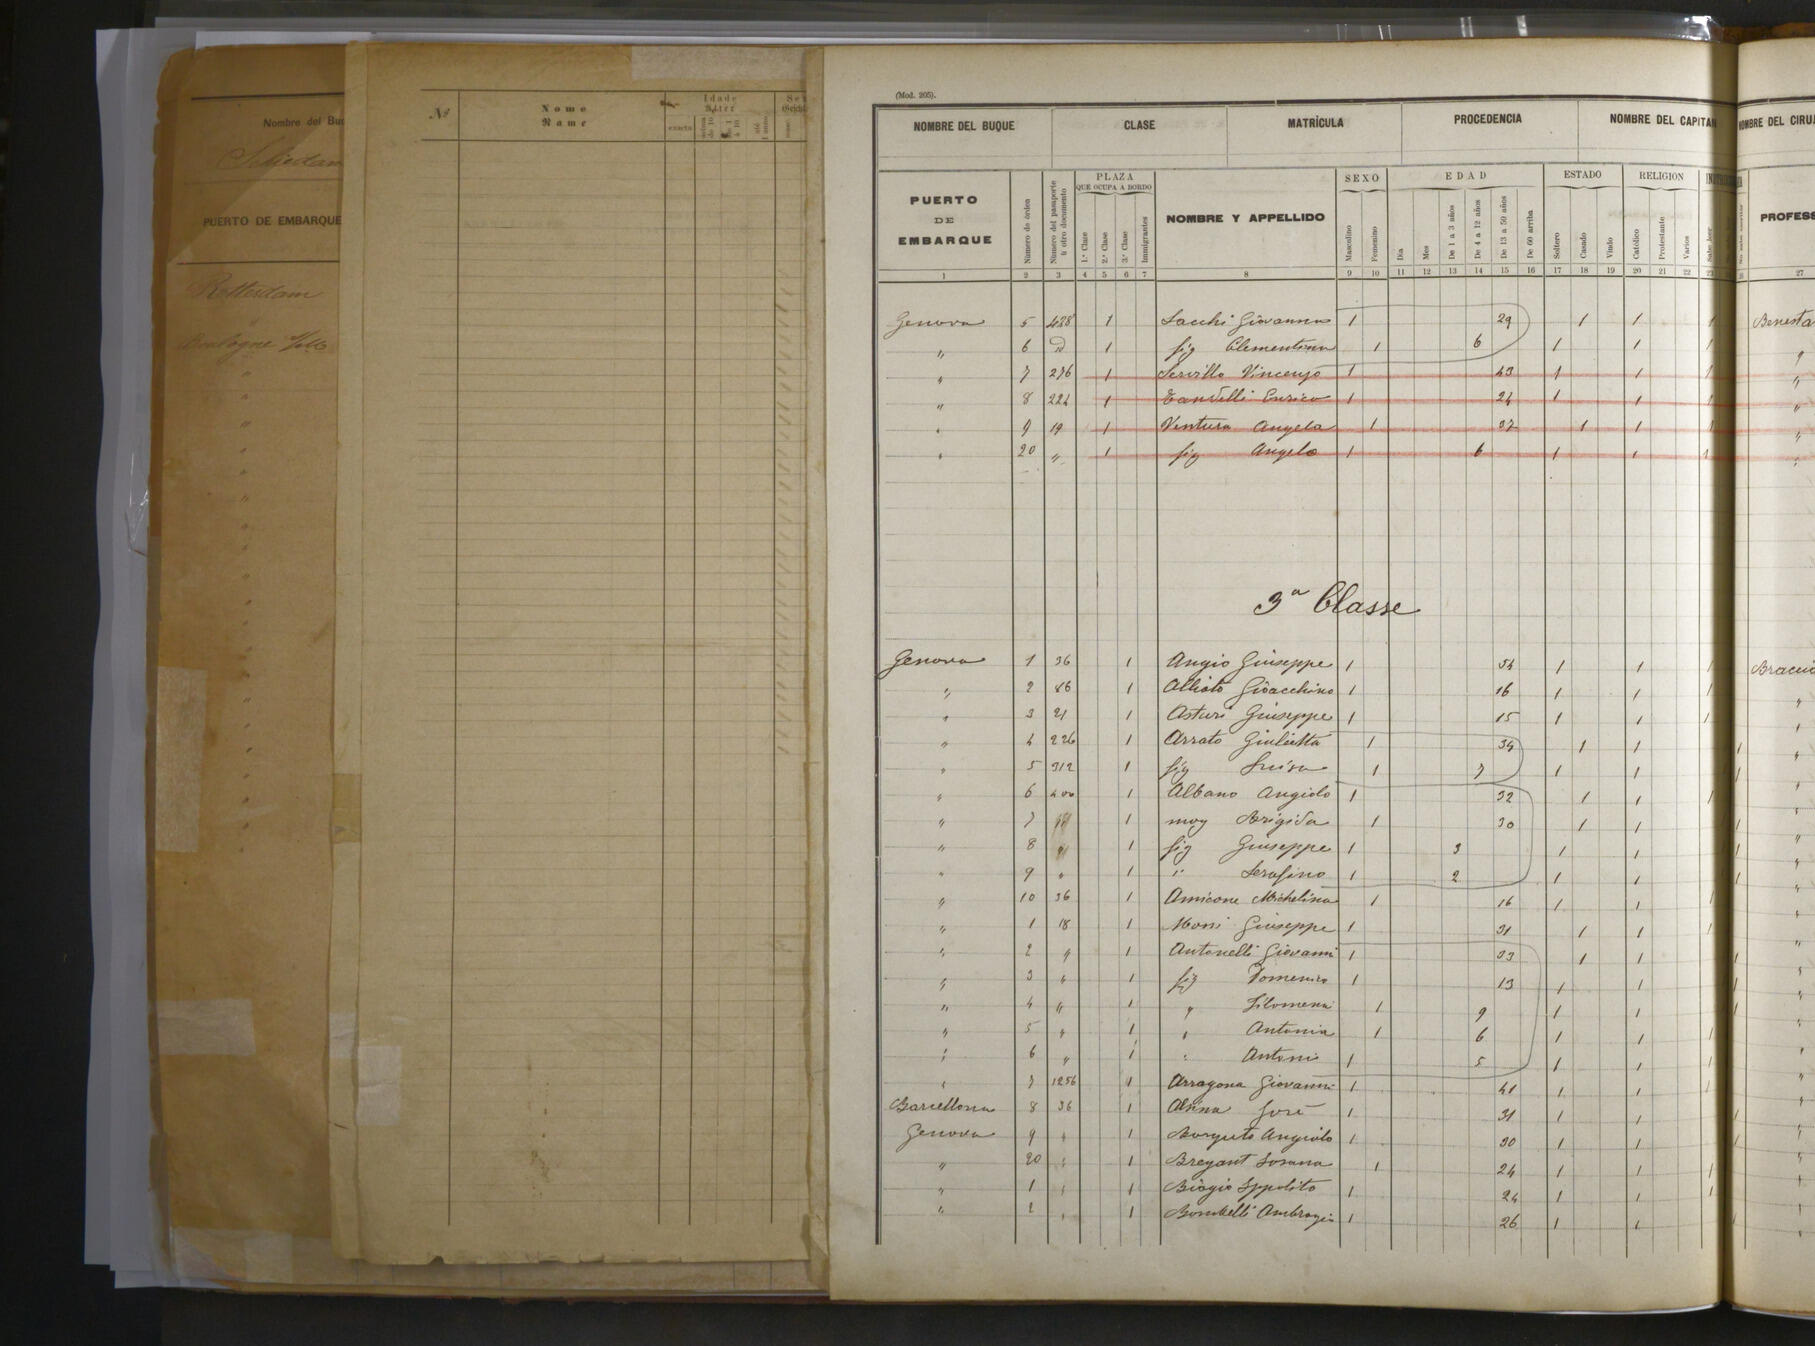 Nombre del Buq
Schiedam
PUERTO DE EMBARQUE
Rotterdam
Boulogne
Nº Nome Idade
Name Alter
exacta
(Mod. 205).
NOMBRE DEL BUQUE CLASE MATRÍCULA PROCEDENCIA NOMBRE DEL CAPITAN NOMBRE DEL CIRUJ
PUERTO DE EMBARQUE Número de órden Número del pasaporte ú otro documento PLAZA QUE OCUPA A BORDO 1.ª Clase 2.ª Clase 3.ª Clase Immigrantes NOMBRE Y APPELLIDO SEXO Masculino Femenino EDAD Dia Mes De 1 a 3 años De 4 a 12 años De 13 a 59 años De 60 arriba ESTADO Soltero Casado Viudo RELIGION Católico Protestante Varios Sabe leer PROFES
1 2 3 4 5 6 7 8 9 10 11 12 13 14 15 16 17 18 19 20 21 22 23 26 27
Genova 5 428 1 Sacchi Giovanna 1 29 1 1 1 Benesta
" 6 D 1 fig Clementina 1 6 1 1 1 "
" 7 276 1 Servillo Vincenzo 1 43 1 1 1 "
" 8 224 1 Zandelli Enrico 1 24 1 1 1 "
" 9 19 1 Ventura Angela 1 37 1 1 1 "
" 20 " 1 fig Angelo 1 6 1 1 1 "
3ª Classe
Genova 1 36 1 Angio Giuseppe 1 54 1 1 1 Bracci
" 2 86 1 Alliato Gioacchino 1 16 1 1 1 "
" 3 21 1 Asturi Giuseppe 1 15 1 1 1 "
" 4 226 1 Arrato Giulietta 1 34 1 1 1 "
" 5 312 1 fig Luisa 1 7 1 1 1 "
" 6 400 1 Albano Angiolo 1 32 1 1 1 "
" 7 1 mog Brigida 1 30 1 1 1 "
" 8 " 1 fig Giuseppe 1 3 1 1 1 "
" 9 " 1 " Serafino 1 2 1 1 1 "
" 10 36 1 Amicone Michelina 1 16 1 1 1 "
" 1 18 1 Moni Giuseppe 1 31 1 1 1 "
" 2 " 1 Antonelli Giovanni 1 33 1 1 1 "
" 3 " 1 fig Domenico 1 13 1 1 1 "
" 4 " 1 " Filomena 1 9 1 1 1 "
" 5 " 1 " Antonia 1 6 1 1 1 "
" 6 " 1 " Antonio 1 5 1 1 1 "
" 7 1256 1 Arragona Giovanni 1 41 1 1 1 "
Barcellona 8 36 1 Alsina José 1 31 1 1 1 "
Genova 9 " 1 Angiolo 1 30 1 1 1 "
" 20 " 1 Bregant Sosana 1 24 1 1 1 "
" 1 " 1 Biagio Ippolito 1 24 1 1 1 "
" 2 " 1 Bombelli Ambrogio 1 26 1 1 1 "